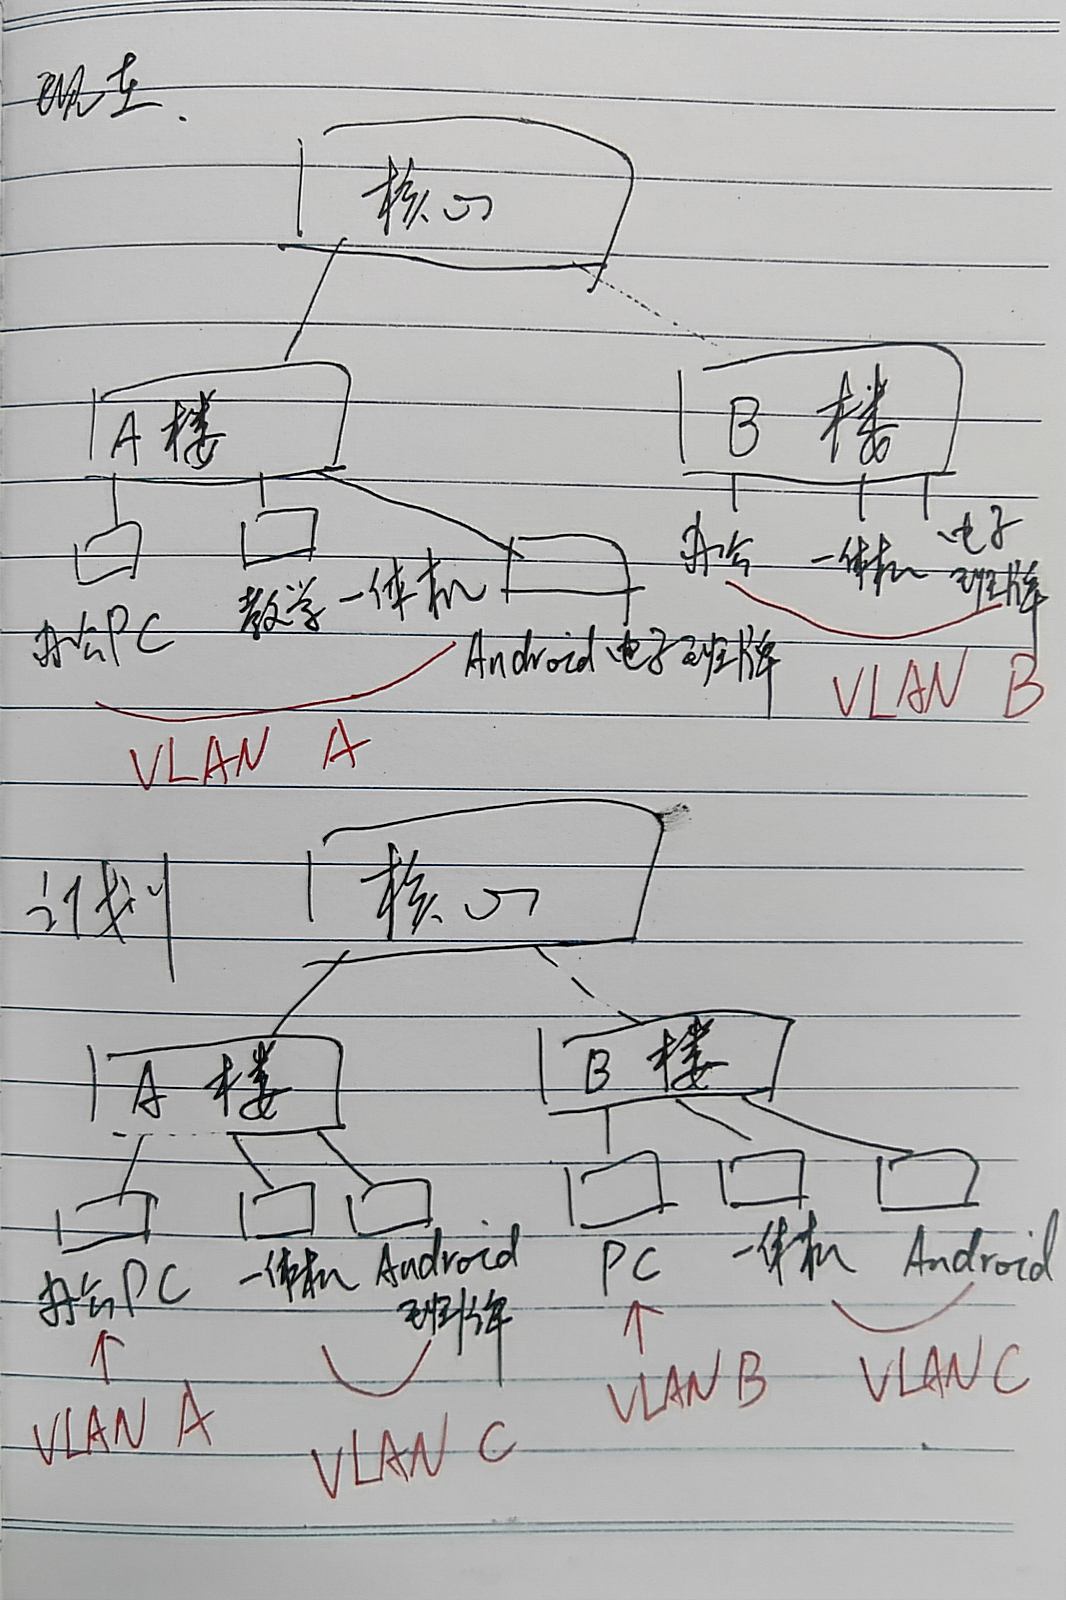 现在.
核心
A楼
B 楼
办公PC
教学一体机
Android 电子班牌
办公
一体机
电子
班牌
VLAN A
VLAN B
计划
核心
A 楼
B 楼
办公PC
一体机
Android
班牌
PC
一体机
Android
VLAN A
VLAN C
VLAN B
VLAN C